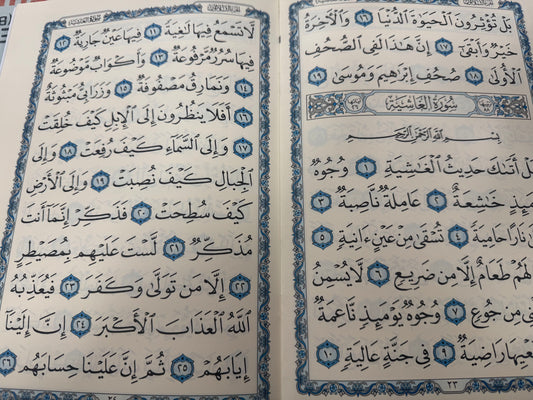 بَلْ تُؤْثِرُونَ الْحَيَوٰةَ الدُّنْيَا ١٦ وَالْآخِرَةُ
خَيْرٌ وَأَبْقَىٰ ١٧ إِنَّ هَـٰذَا لَفِي الصُّحُفِ
الْأُولَىٰ ١٨ صُحُفِ إِبْرَاهِيمَ وَمُوسَىٰ ١٩
سُورَةُ الْغَاشِيَةِ
بِسْمِ اللَّهِ الرَّحْمَـٰنِ الرَّحِيمِ
هَلْ أَتَىٰكَ حَدِيثُ الْغَـٰشِيَةِ ١ وُجُوهٌ
يَوْمَئِذٍ خَـٰشِعَةٌ ٢ عَامِلَةٌ نَّاصِبَةٌ ٣
نَارًا حَامِيَةً ٤ تُسْقَىٰ مِنْ عَيْنٍ ءَانِيَةٍ ٥
لَهُمْ طَعَامٌ إِلَّا مِن ضَرِيعٍ ٦ لَّا يُسْمِنُ
مِن جُوعٍ ٧ وُجُوهٌ يَوْمَئِذٍ نَّاعِمَةٌ ٨
لِّسَعْيِهَا رَاضِيَةٌ ٩ فِي جَنَّةٍ عَالِيَةٍ ١٠
٢٣
لَّا تَسْمَعُ فِيهَا لَـٰغِيَةً ١١ فِيهَا عَيْنٌ جَارِيَةٌ ١٢
فِيهَا سُرُرٌ مَّرْفُوعَةٌ ١٣ وَأَكْوَابٌ مَّوْضُوعَةٌ
١٤ وَنَمَارِقُ مَصْفُوفَةٌ ١٥ وَزَرَابِيُّ مَبْثُوثَةٌ
١٦ أَفَلَا يَنظُرُونَ إِلَى الْإِبِلِ كَيْفَ خُلِقَتْ
١٧ وَإِلَى السَّمَاءِ كَيْفَ رُفِعَتْ ١٨ وَإِلَى
الْجِبَالِ كَيْفَ نُصِبَتْ ١٩ وَإِلَى الْأَرْضِ
كَيْفَ سُطِحَتْ ٢٠ فَذَكِّرْ إِنَّمَا أَنتَ
مُذَكِّرٌ ٢١ لَّسْتَ عَلَيْهِم بِمُصَيْطِرٍ
٢٢ إِلَّا مَن تَوَلَّىٰ وَكَفَرَ ٢٣ فَيُعَذِّبُهُ
اللَّهُ الْعَذَابَ الْأَكْبَرَ ٢٤ إِنَّ إِلَيْنَا
إِيَابَهُمْ ٢٥ ثُمَّ إِنَّ عَلَيْنَا حِسَابَهُم ٢٦
٢٤